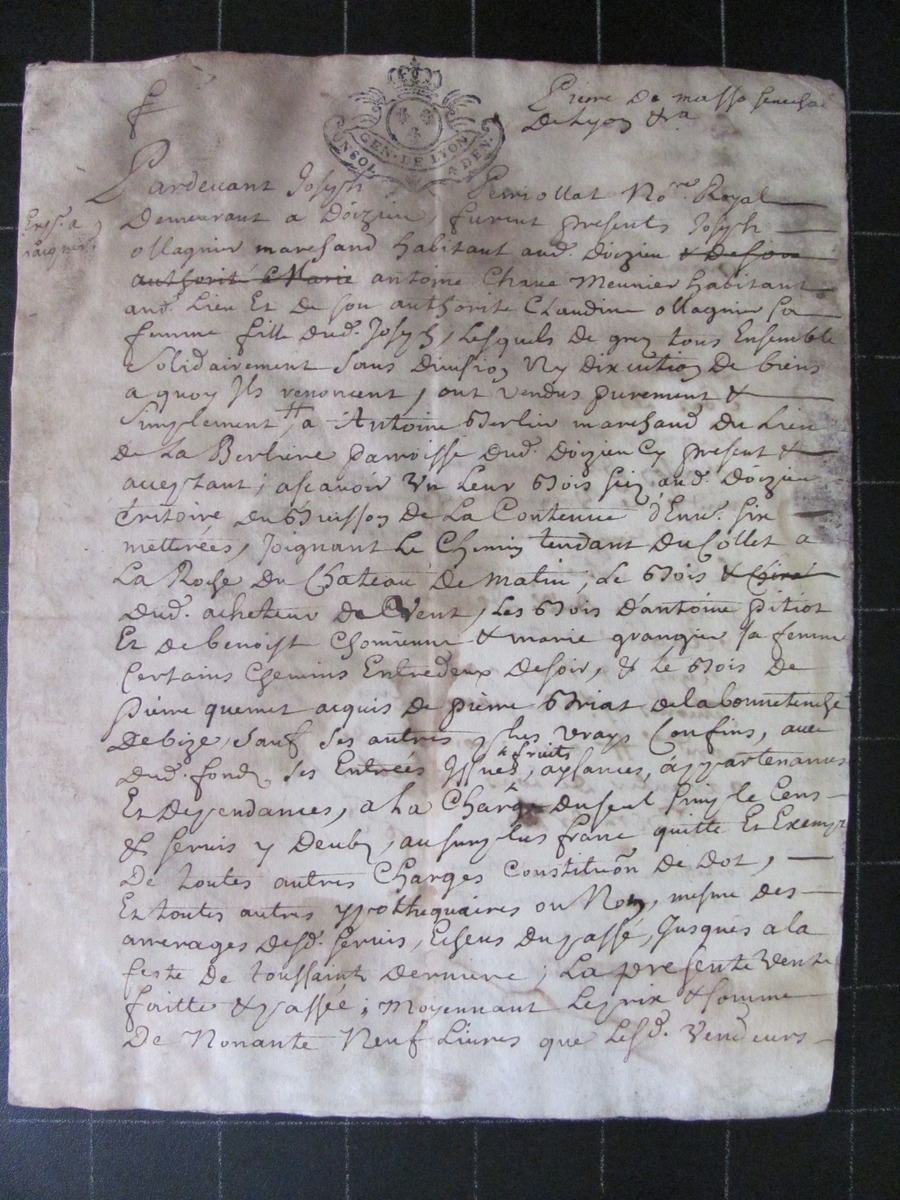 Pierre De masso senechal
De Lyon &a
GEN. DE LYON
Pardevant Joseph Perriollat No.re Royal
Demeurant a Doizieu furent presents Joseph
ollagnier marchand habitant aud. Doizieu & De son
authorité & Marie antoine Chave Meunier habitant
aud. Lieu Et De son authorite Claudine ollagnier sa
femme fille dud. Joseph, Lesquels De grez tous Ensemble
Solidairement Sans Division Ny discution De biens
a quoy Ils renoncent, ont vendus purement &
Simplement a Antoine Berlier marchand Du Lieu
De La Berliere parroisse dud. Doizieu Cy present &
acceptant; ascavoir Un Leur Bois scis aud. Doizieu
territoire du Buisson De La Contenue d'Env. six
metterées, Joignant Le Chemin tendant Du Collet a
La Roche Du Chateau De matin, Le Bois &
Dud. acheteur De Vent, Les Bois d'antoine pitiot
Et De benoist Chomienne & marie grangier sa femme
Certains Chemins Entredeux De soir, & Le Bois De
pierre quemet acquis De pierre Briat
De bize, Sauf Ses autres plus vrays Confins, avec
Dud. fonds Ses Entrées Issues, & fruits, aysances, appartenances
Et Dependances, a La Charge Du seul simple Cens
& servis y Deubs, au surplus franc quitte Et Exempt
De toutes autres Charges Constitution De Dot,
Et toutes autres ypothequaires ou Non, mesme des
arrerages Desd. servis, Eschus Du passé, Jusques a la
feste De toussaints Derniere; La presente Vente
faitte & passée; Moyennant Le prix & somme
De Nonante Neuf Livres que Lesd. Vendeurs